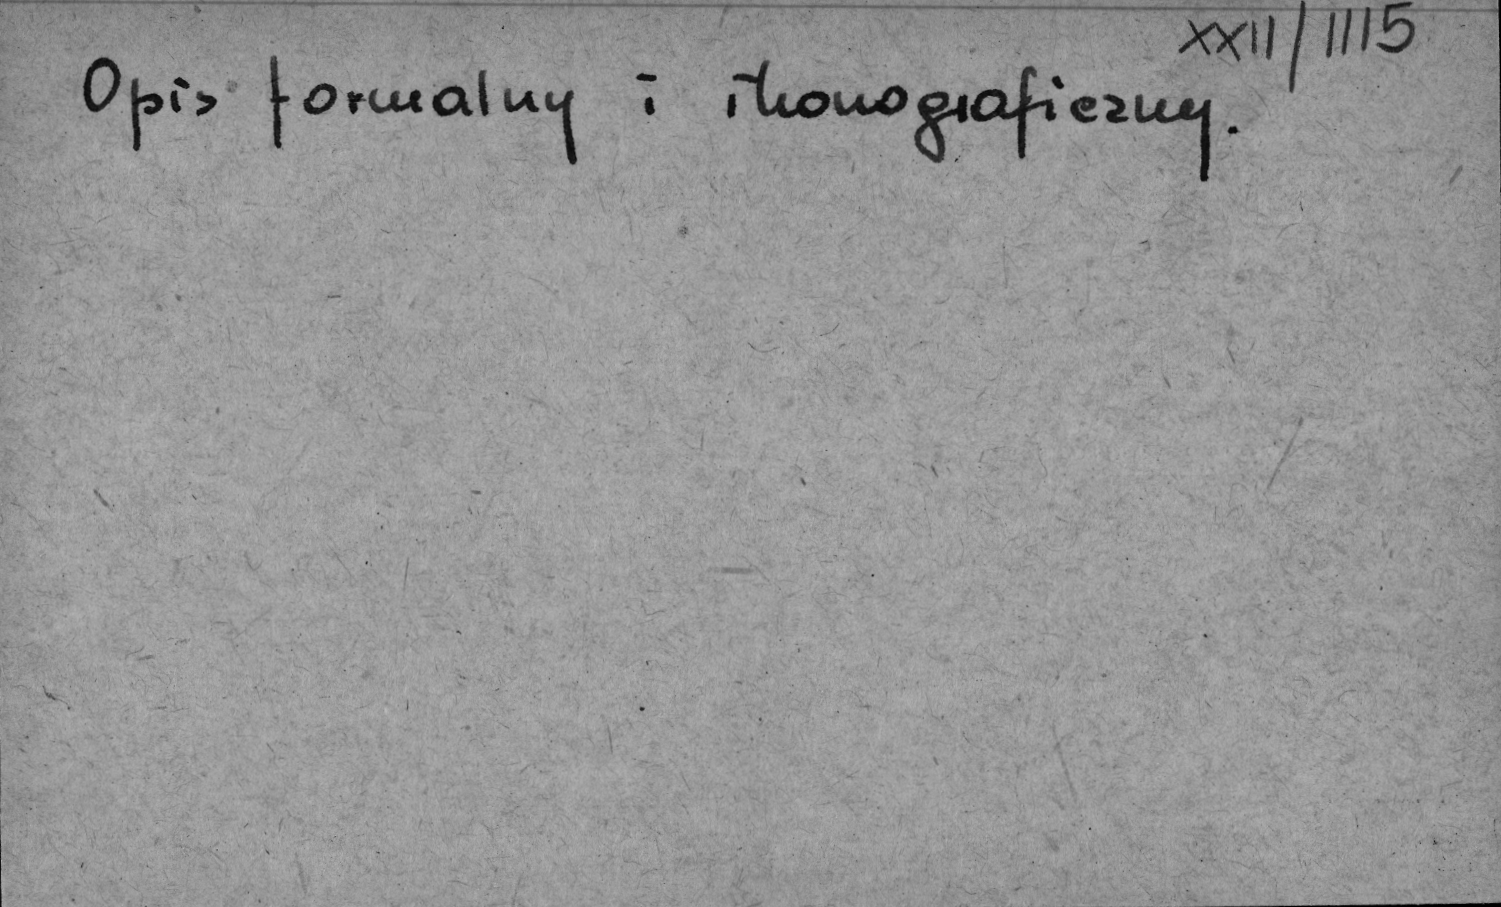 XXII/1115
Opis formalny i ikonograficzny.